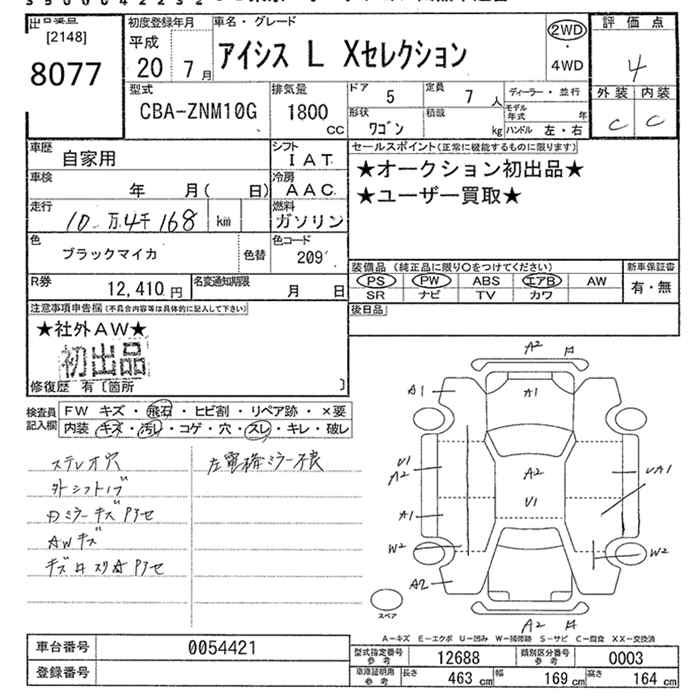 出品番号
[2148]
8077
初度登録年月
平成
20 7月
車名・グレード
アイシス L Xセレクション
2WD
・
4WD
評価点
4
外装 内装
C C
型式
CBA-ZNM10G
排気量
1800
cc
ドア 5
定員 7 人
形状 ワゴン
積載 kg
ディーラー・並行
モデル年式 年
ハンドル 左・右
車歴 自家用
シフト IAT
車検 年 月( 日)
冷房 AAC
走行 10万4千168 km
燃料 ガソリン
色 ブラックマイカ
色替
色コード 209
R券 12,410 円
名変通知期限 月 日
セールスポイント(正常に機能するものに限ります)
★オークション初出品★
★ユーザー買取★
装備品(純正品に限り○をつけてください)
新車保証書
PS PW ABS エアB AW
SR ナビ TV カワ
有・無
後日品
注意事項申告欄(不具合内容等は具体的に記入して下さい)
★社外AW★
初出品
修復歴 有〔箇所 〕
検査員記入欄
FW キズ・飛石・ヒビ割・リペア跡・×要
内装 キズ・汚レ・コゲ・穴・スレ・キレ・破レ
ステレオ穴
外シフトノブ
Dミラーキズ
AWキズ
左電格ミラー不良
A2
A1 A1
U1
A2 A2 UA1
U1
A1
W2 W2
A2
A2
スペア
A-キズ E-エクボ U-凹み W-補修跡 S-サビ C-腐食 XX-交換済
車台番号 0054421
登録番号
型式指定番号 参考 12688
類別区分番号 参考 0003
車庫証明用 参考 長さ 463 cm 幅 169 cm 高さ 164 cm